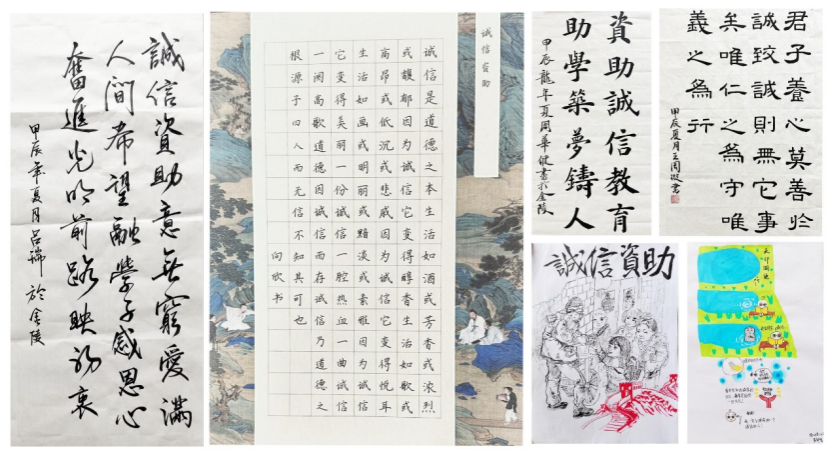 誠信資助意无窮愛滿
人間希望融學子感恩心
奮進光明前路映初衷
甲辰年夏月吕瑞於金陵
诚信资助
诚信是道德之本生活如酒或芳香或浓烈
或馥郁因为诚信它变得醇香生活如歌或
高昂或低沉或悲戚因为诚信它变得悦耳
生活如画或明丽或黯淡或素雅因为诚信
它变得美丽一份诚信一腔热血一曲诚信
一阕高歌道德因诚信而存诚信乃道德之
根源子曰人而无信不知其可也
向欣书
資助誠信教育
助學築夢鑄人
甲辰龍年夏周華健書於金陵
君子養心莫善於
誠致誠則無它事
矣唯仁之為守唯
義之為行
甲辰夏月王
誠信資助